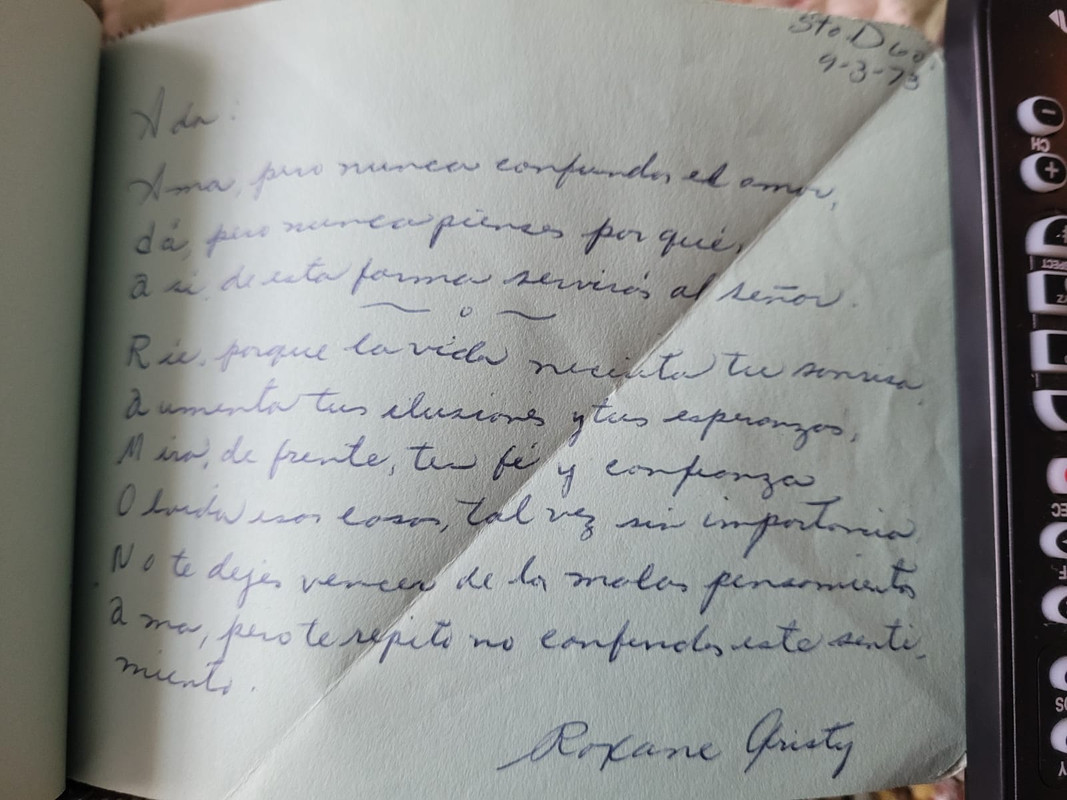 Sto. Dgo
9-3-73
Ada:
Ama, pero nunca confundas el amor,
dá, pero nunca pienses por qué,
a si, de esta forma servirás al señor.
Rie, porque la vida necesita tu sonrisa,
aumenta tus ilusiones y tus esperanzas,
Mira, de frente, ten fé y confianza
Olvida esas cosas, tal vez sin importancia
No te dejes vencer de los malos pensamientos
ama, pero te repito no confundas este senti-
miento.
Roxane Gristy
CH